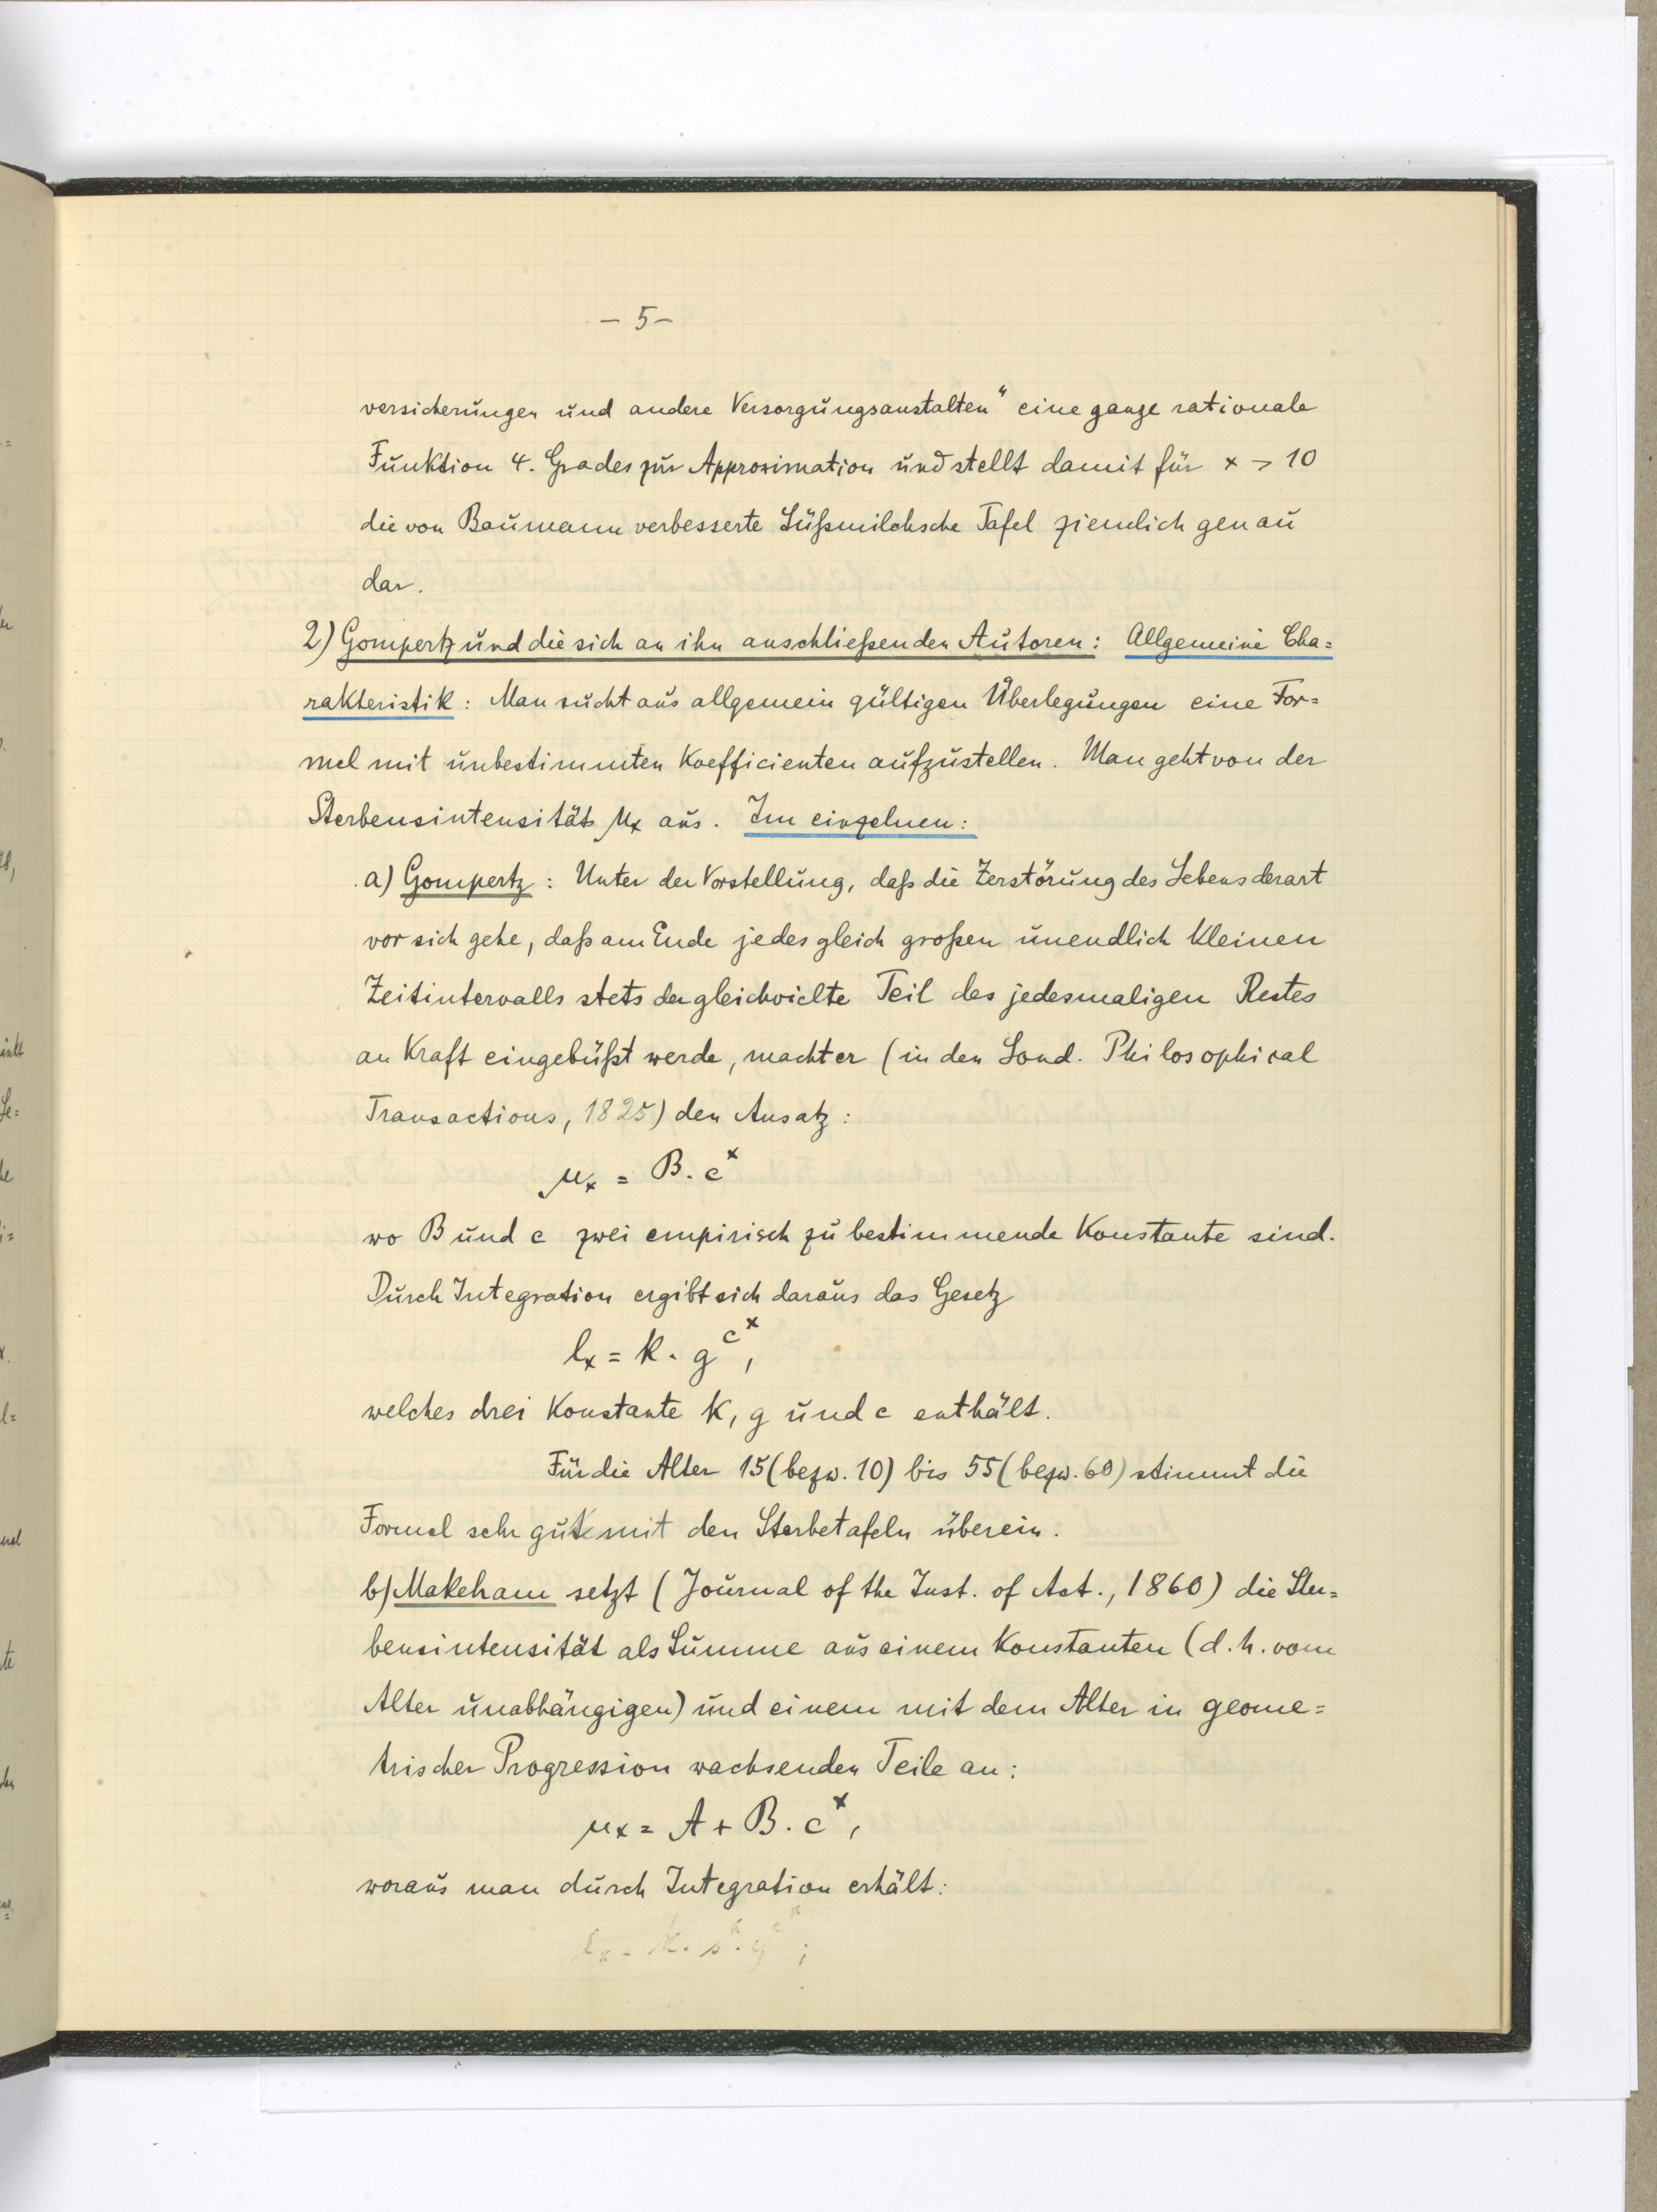 – 5 –
versicherungen und andere Versorgungsanstalten" eine ganze rationale
Funktion 4. Grades zur Approximation und stellt damit für x > 10
die von Baumann verbesserte Süßmilchsche Tafel ziemlich genau
dar.
2) Gompertz und die sich an ihn anschließenden Autoren: Allgemeine Cha=
rakteristik: Man sucht aus allgemein gültigen Überlegungen eine For=
mel mit unbestimmten Koefficienten aufzustellen. Man geht von der
Sterbensintensität μx aus. Im einzelnen:
a) Gompertz: Unter der Vorstellung, daß die Zerstörung des Lebens derart
vor sich gehe, daß am Ende jedes gleich großen unendlich kleinen
Zeitintervalls stets der gleichvielte Teil des jedesmaligen Restes
an Kraft eingebüßt werde, macht er (in den Lond. Philosophical
Transactions, 1825) den Ansatz:
μx = B. c^x
wo B und c zwei empirisch zu bestimmende Konstante sind.
Durch Integration ergibt sich daraus das Gesetz
lx = k. g^c^x,
welches drei Konstante k, g und c enthält.
Für die Alter 15 (bezw. 10) bis 55 (bezw. 60) stimmt die
Formel sehr gut mit den Sterbetafeln überein.
b) Makeham setzt (Journal of the Inst. of Act., 1860) die Ster=
bensintensität als Summe aus einem konstanten (d.h. vom
Alter unabhängigen) und einem mit dem Alter in geome=
trischer Progression wachsenden Teile an:
μx = A + B. c^x,
woraus man durch Integration erhält:
lx = k. s^x. g^c^x;